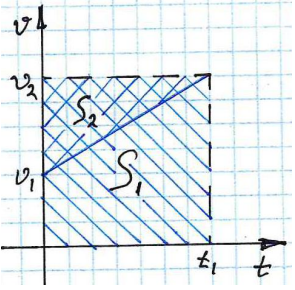 v
v₂
S₂
v₁
S₁
t₁
t